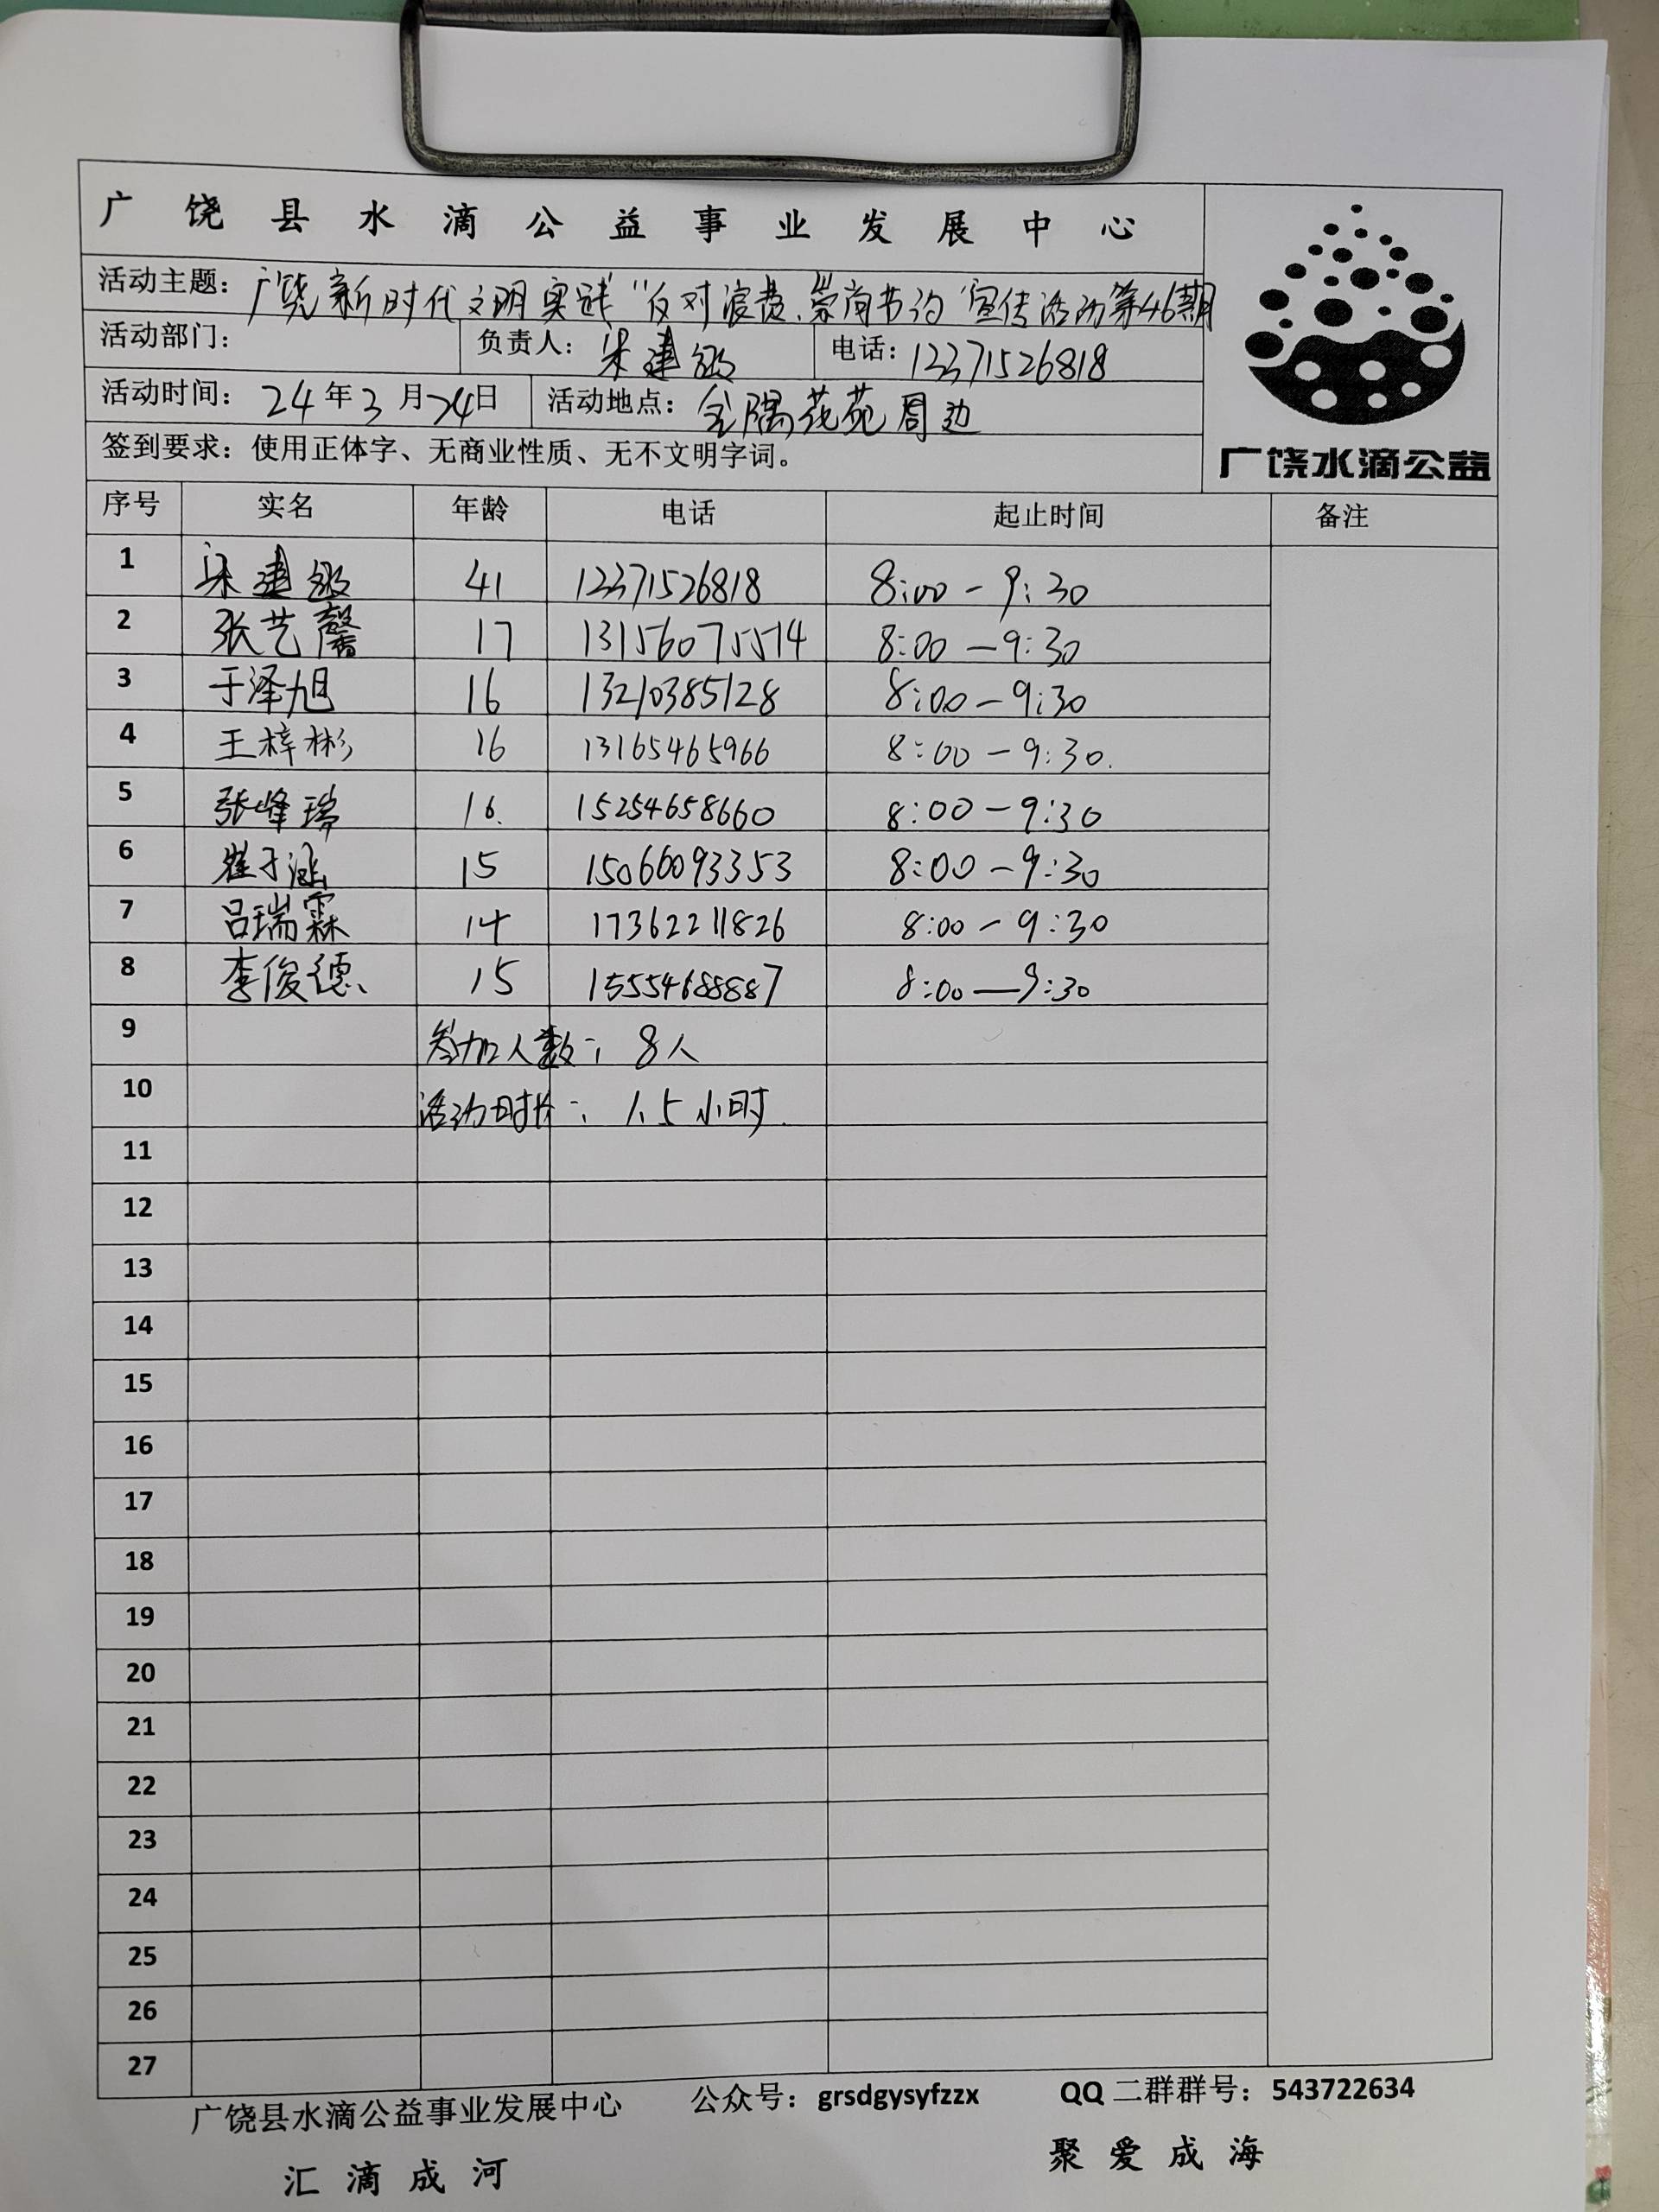 广饶县水滴公益事业发展中心
活动主题：广饶新时代文明实践“反对浪费、崇尚节约”宣传活动第46期
活动部门： 负责人： 电话：12371526818
活动时间：24年3月24日 活动地点：金隅花苑周边
签到要求：使用正体字、无商业性质、无不文明字词。
广饶水滴公益
序号 实名 年龄 电话 起止时间 备注
1 41 12371526818 8:00-9:30
2 张艺馨 17 13156075514 8:00-9:30
3 于泽旭 16 13210385128 8:00-9:30
4 王梓彬 16 13165465966 8:00-9:30.
5 张峰瑞 16. 15254658660 8:00-9:30
6 崔子涵 15 15066093353 8:00-9:30
7 吕瑞霖 14 17362211826 8:00-9:30
8 李俊德 15 15554688887 8:00—9:30
9 参加人数：8人
10 活动时长：1.5小时.
11
12
13
14
15
16
17
18
19
20
21
22
23
24
25
26
27
广饶县水滴公益事业发展中心 公众号：grsdgysyfzzx QQ二群群号：543722634
汇滴成河 聚爱成海